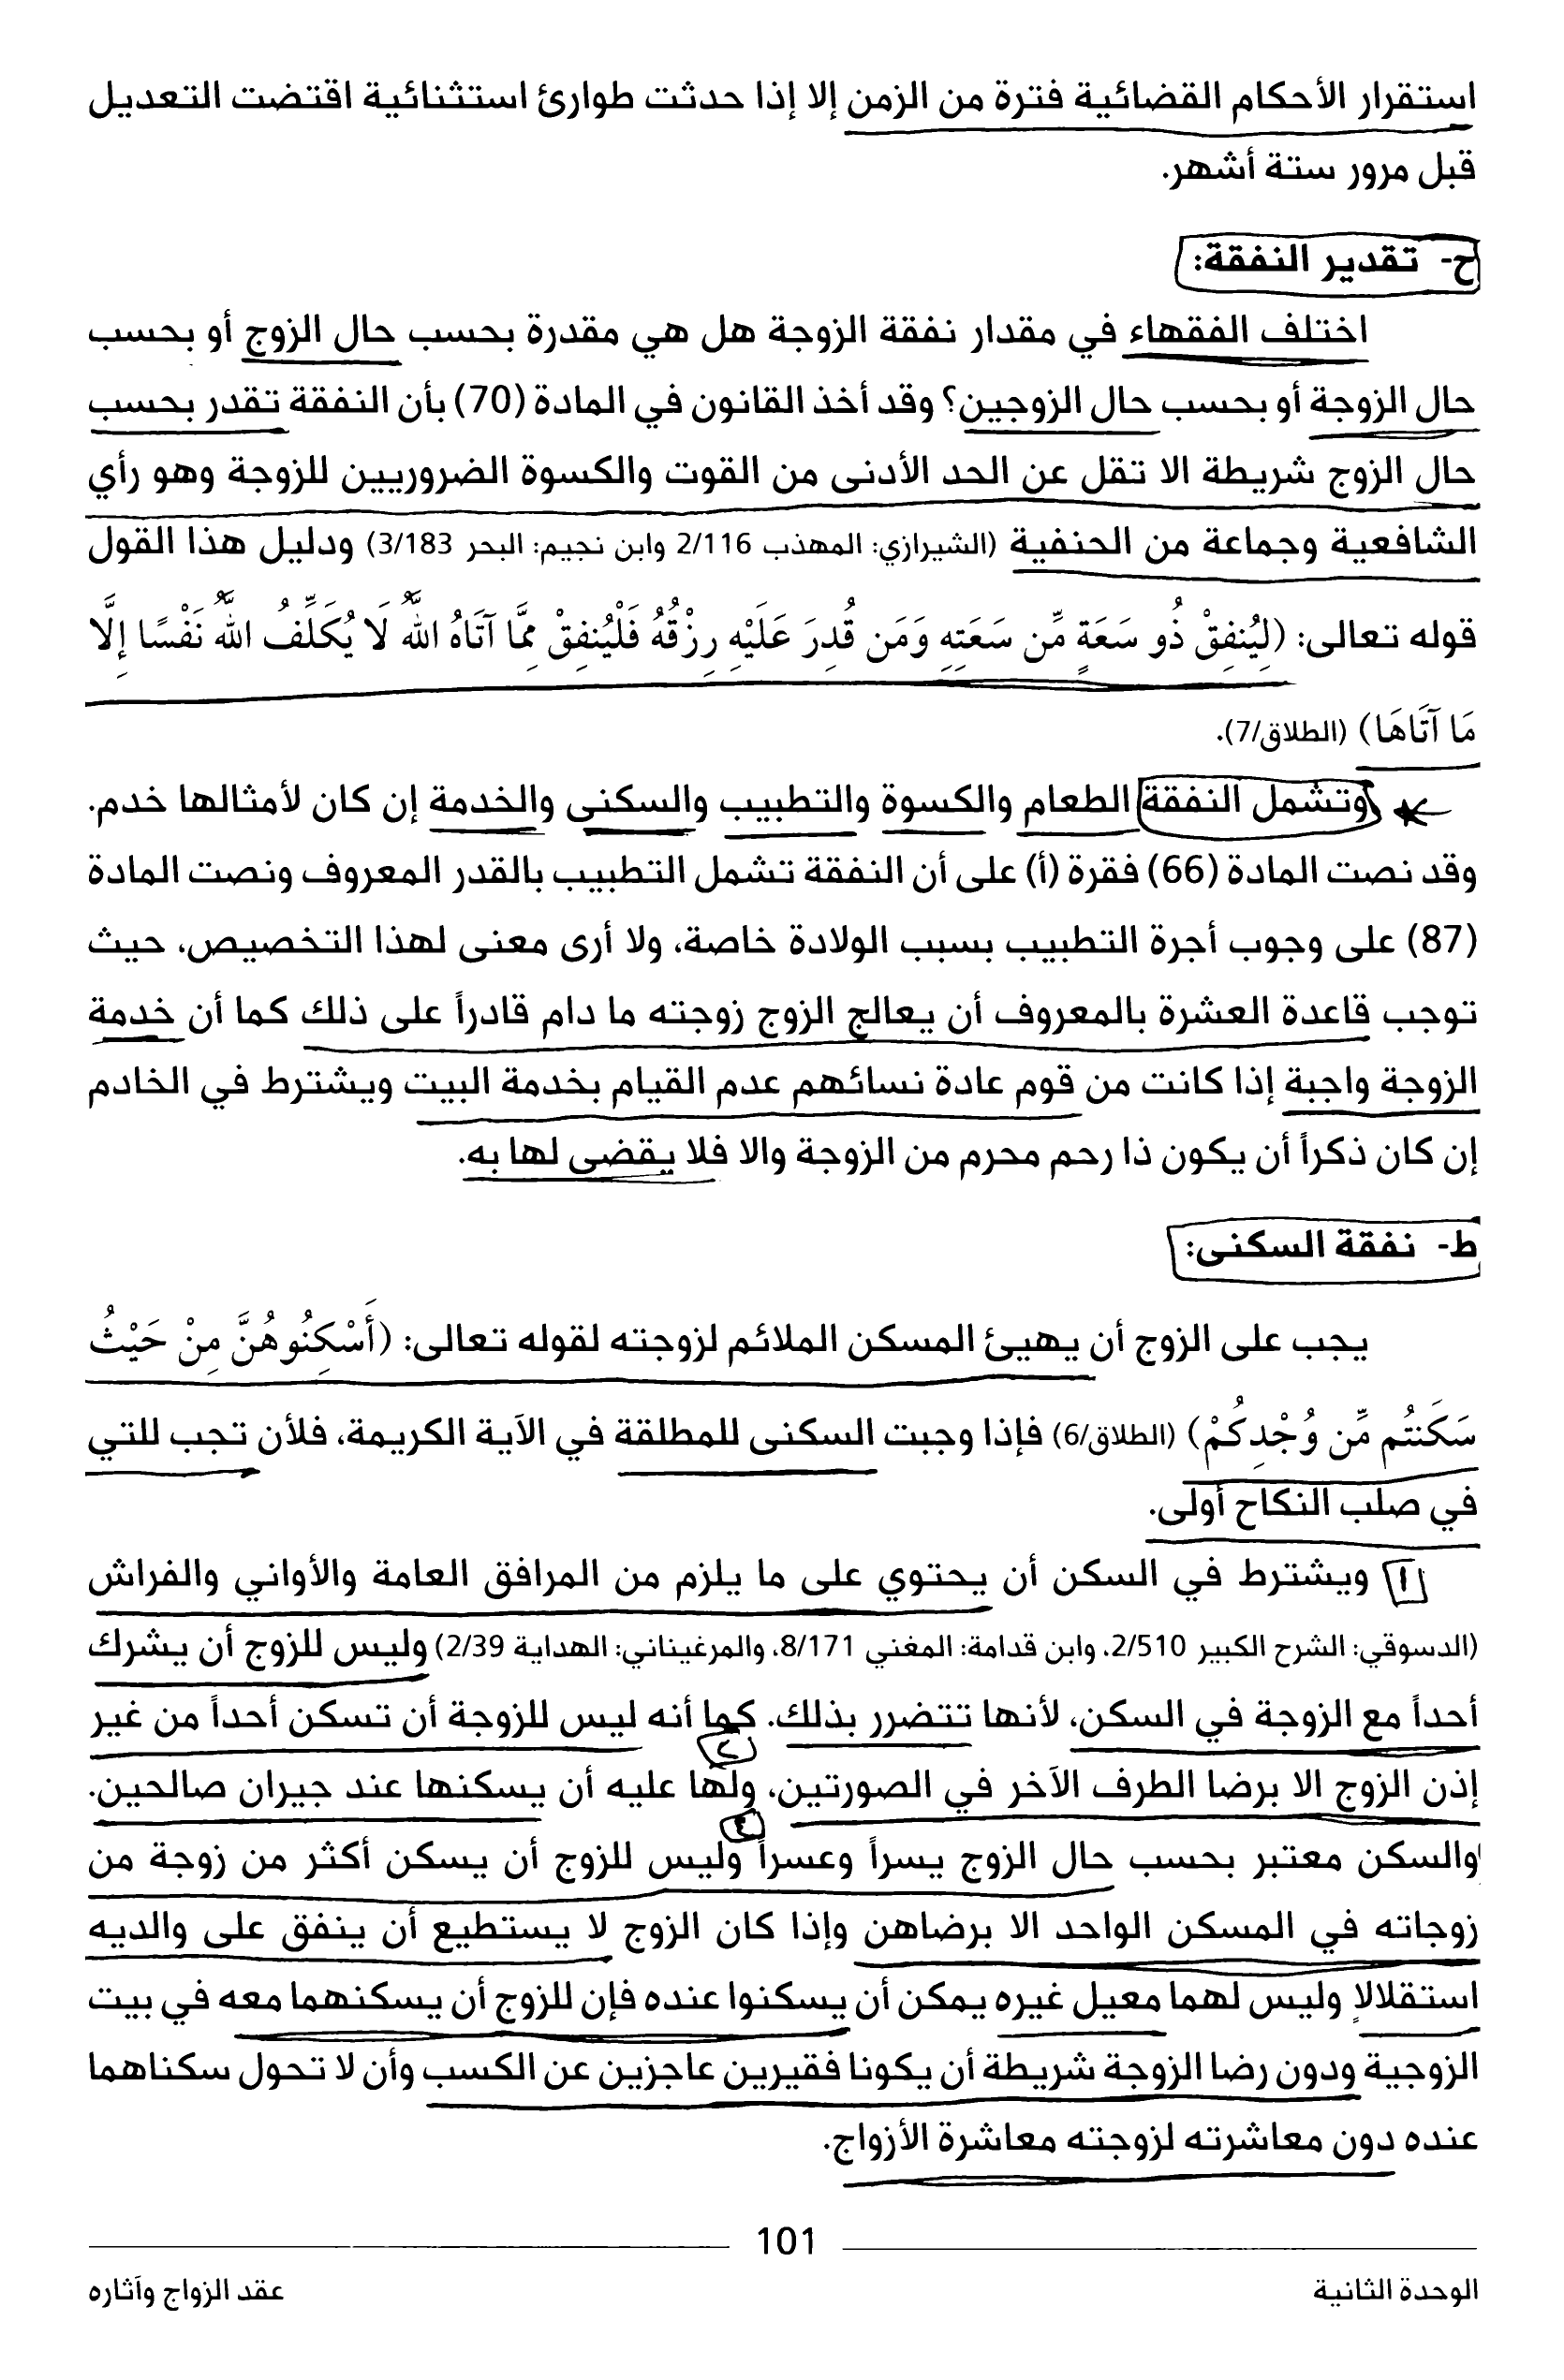 استقرار الأحكام القضائية فترة من الزمن إلا إذا حدثت طوارئ استثنائية اقتضت التعديل
قبل مرور ستة أشهر.
ح- تقدير النفقة:
اختلف الفقهاء في مقدار نفقة الزوجة هل هي مقدرة بحسب حال الزوج أو بحسب
حال الزوجة أو بحسب حال الزوجين؟ وقد أخذ القانون في المادة (70) بأن النفقة تقدر بحسب
حال الزوج شريطة الا تقل عن الحد الأدنى من القوت والكسوة الضروريين للزوجة وهو رأي
الشافعية وجماعة من الحنفية (الشيرازي: المهذب 2/116 وابن نجيم: البحر 3/183) ودليل هذا القول
قوله تعالى: (لِيُنفِقْ ذُو سَعَةٍ مِّن سَعَتِهِ وَمَن قُدِرَ عَلَيْهِ رِزْقُهُ فَلْيُنفِقْ مِمَّا آتَاهُ اللَّهُ لَا يُكَلِّفُ اللَّهُ نَفْسًا إِلَّا
مَا آتَاهَا) (الطلاق/7).
وتشمل النفقة الطعام والكسوة والتطبيب والسكنى والخدمة إن كان لأمثالها خدم.
وقد نصت المادة (66) فقرة (أ) على أن النفقة تشمل التطبيب بالقدر المعروف ونصت المادة
(87) على وجوب أجرة التطبيب بسبب الولادة خاصة، ولا أرى معنى لهذا التخصيص، حيث
توجب قاعدة العشرة بالمعروف أن يعالج الزوج زوجته ما دام قادراً على ذلك كما أن خدمة
الزوجة واجبة إذا كانت من قوم عادة نسائهم عدم القيام بخدمة البيت ويشترط في الخادم
إن كان ذكراً أن يكون ذا رحم محرم من الزوجة والا فلا يقضى لها به.
ط- نفقة السكنى:
يجب على الزوج أن يهيئ المسكن الملائم لزوجته لقوله تعالى: (أَسْكِنُوهُنَّ مِنْ حَيْثُ
سَكَنتُم مِّن وُجْدِكُمْ) (الطلاق/6) فإذا وجبت السكنى للمطلقة في الآية الكريمة، فلأن تجب للتي
في صلب النكاح أولى.
١ ويشترط في السكن أن يحتوي على ما يلزم من المرافق العامة والأواني والفراش
(الدسوقي: الشرح الكبير 2/510، وابن قدامة: المغني 8/171، والمرغيناني: الهداية 2/39) وليس للزوج أن يشرك
أحداً مع الزوجة في السكن، لأنها تتضرر بذلك. كما أنه ليس للزوجة أن تسكن أحداً من غير
إذن الزوج الا برضا الطرف الآخر في الصورتين، ولها عليه أن يسكنها عند جيران صالحين.
والسكن معتبر بحسب حال الزوج يسراً وعسراً وليس للزوج أن يسكن أكثر من زوجة من
زوجاته في المسكن الواحد الا برضاهن وإذا كان الزوج لا يستطيع أن ينفق على والديه
استقلالاٍ وليس لهما معيل غيره يمكن أن يسكنوا عنده فإن للزوج أن يسكنهما معه في بيت
الزوجية ودون رضا الزوجة شريطة أن يكونا فقيرين عاجزين عن الكسب وأن لا تحول سكناهما
عنده دون معاشرته لزوجته معاشرة الأزواج.
101
الوحدة الثانية عقد الزواج وآثاره